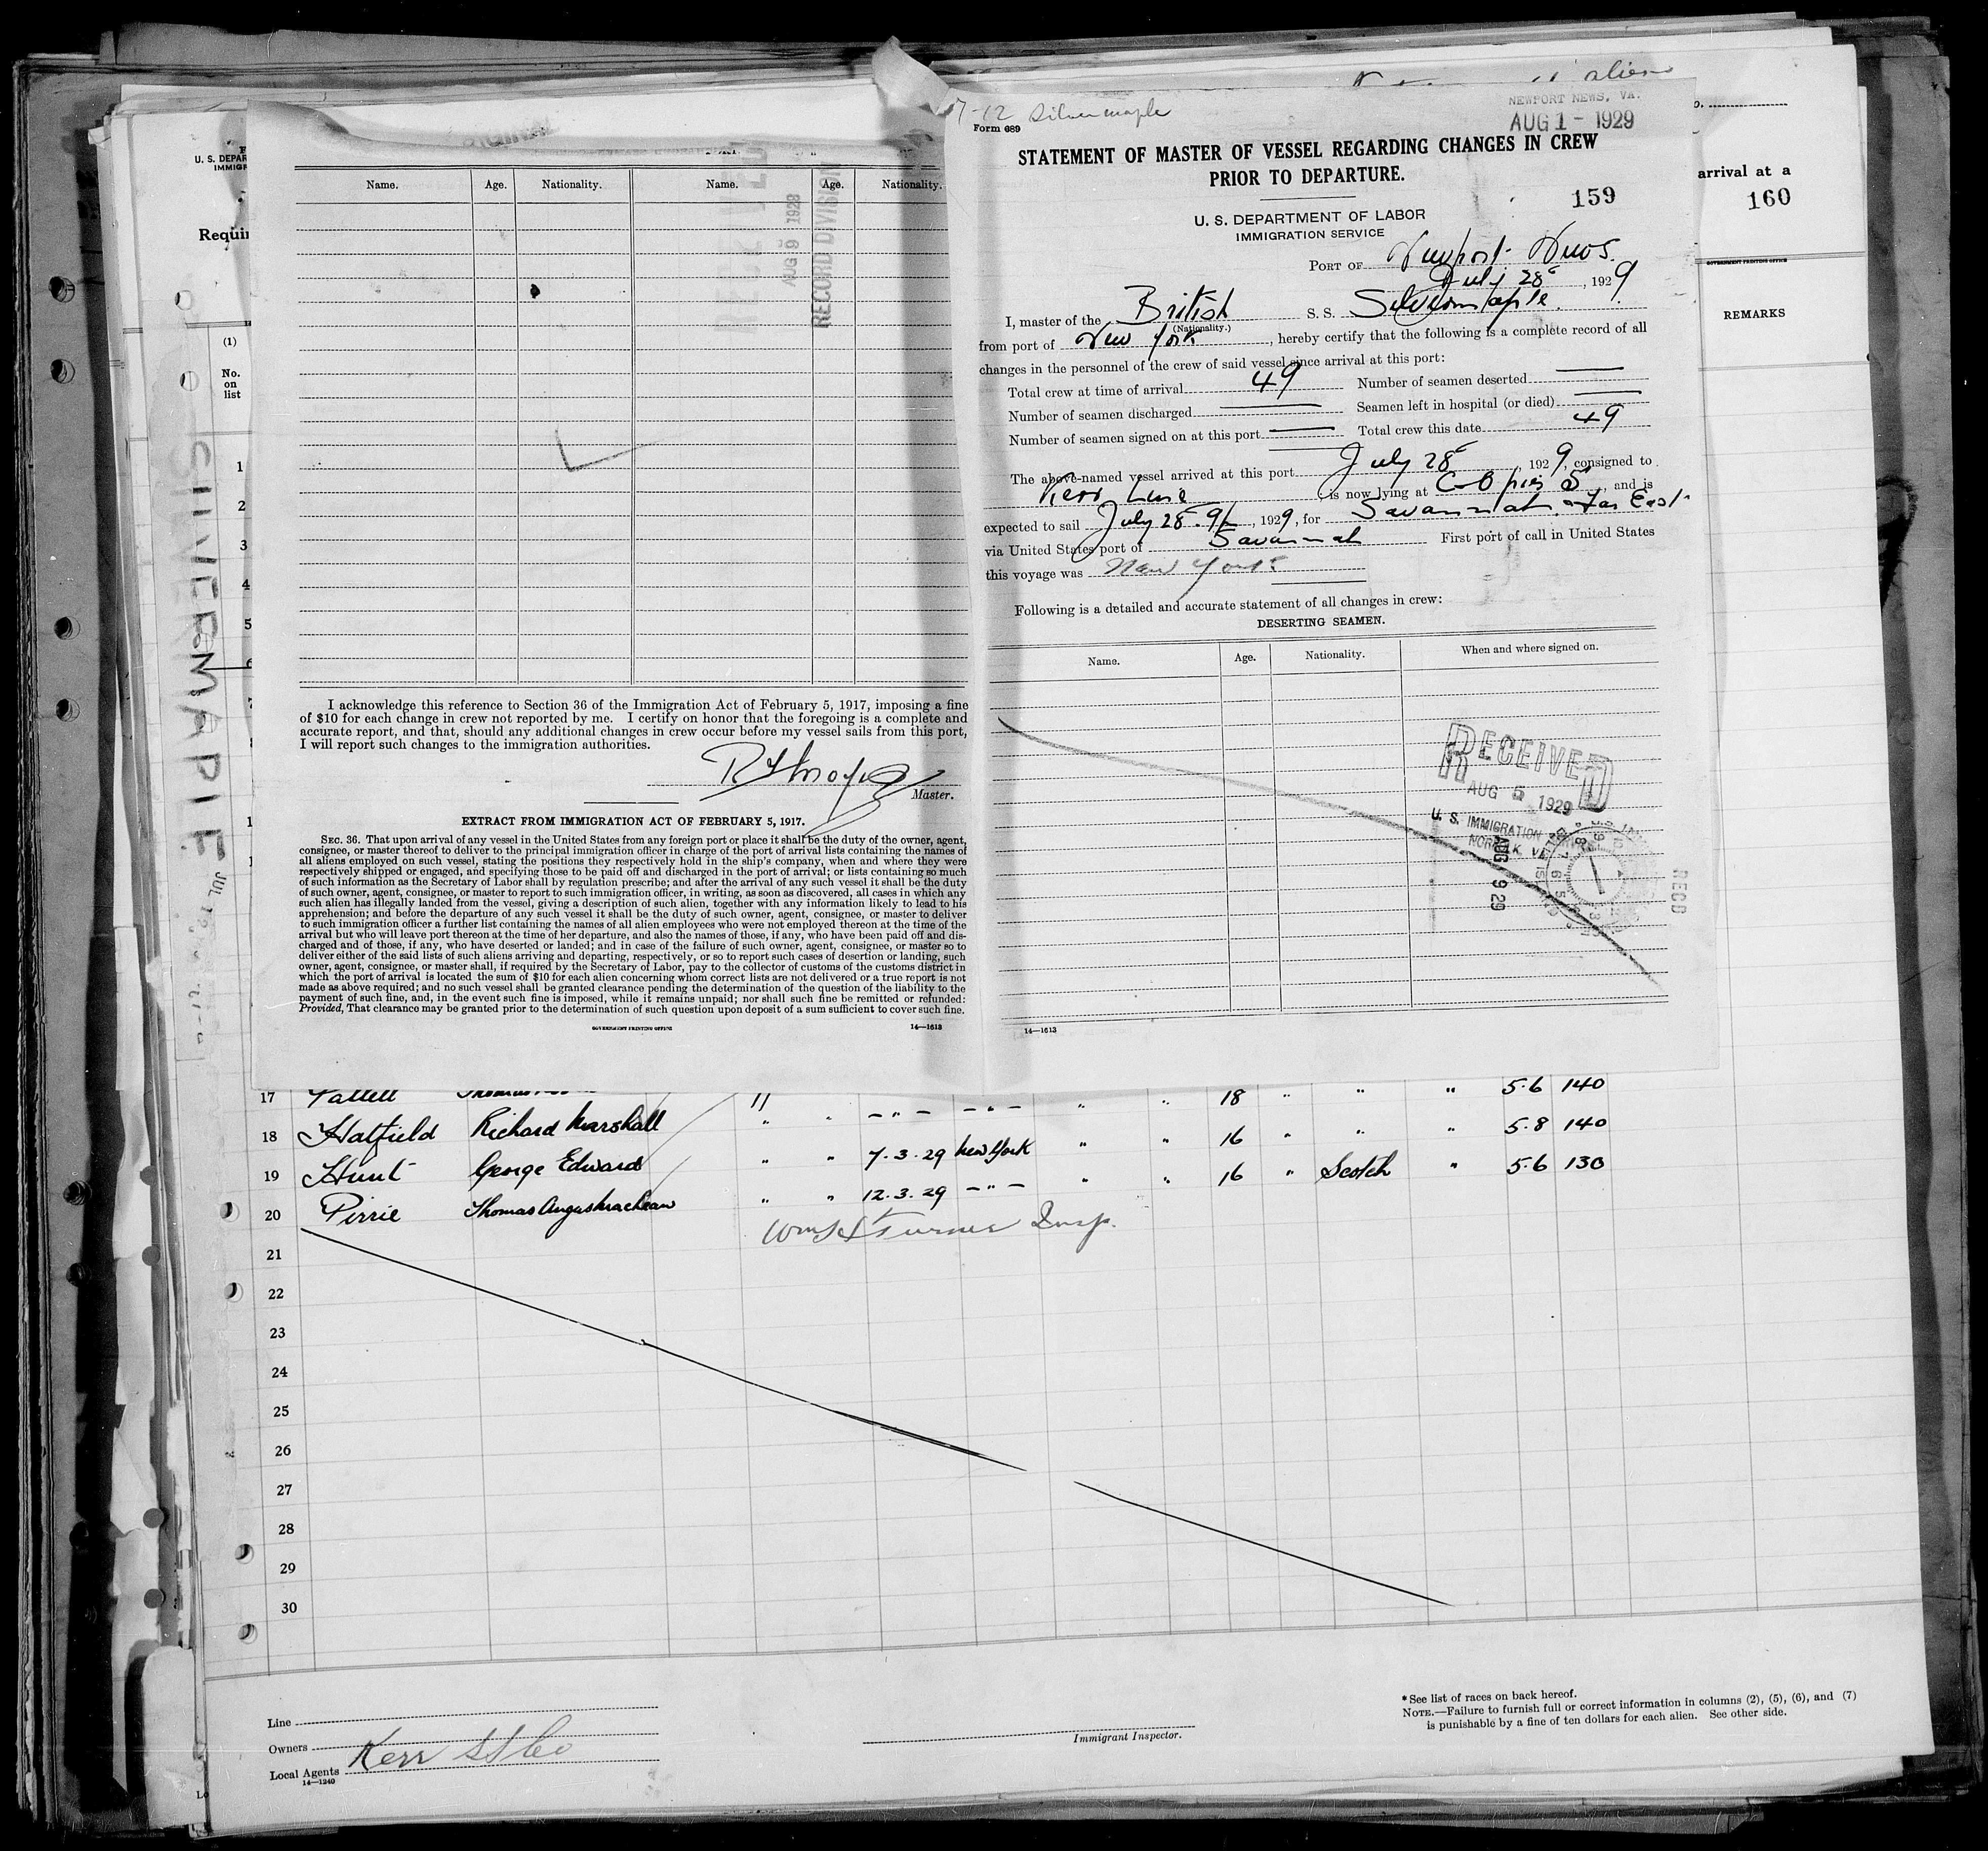 alien
7-12 Silvermaple
NEWPORT NEWS, VA.
AUG 1 - 1929
Form 689
STATEMENT OF MASTER OF VESSEL REGARDING CHANGES IN CREW
PRIOR TO DEPARTURE.
159
U. S. DEPARTMENT OF LABOR
IMMIGRATION SERVICE
PORT OF Newport News.
July 28, 1929
I, master of the British S. S. Silvermaple.
(Nationality.)
from port of New York, hereby certify that the following is a complete record of all
changes in the personnel of the crew of said vessel since arrival at this port:
Total crew at time of arrival 49 Number of seamen deserted —
Number of seamen discharged — Seamen left in hospital (or died) —
Number of seamen signed on at this port — Total crew this date 49
The above-named vessel arrived at this port July 28, 1929, consigned to
Kerr Line is now lying at C-O pier 5, and is
expected to sail July 28, 1929, for Savannah Far East
via United States port of Savannah First port of call in United States
this voyage was New York
Following is a detailed and accurate statement of all changes in crew:
DESERTING SEAMEN.
Name. Age. Nationality. When and where signed on.
RECEIVED
AUG 5 1929
U. S. IMMIGRATION
NORFOLK, VA.
AUG 9 29
RECD
14—1613
Name. Age. Nationality. Name. Age. Nationality.
AUG 9 1928
RECORD DIVISION
I acknowledge this reference to Section 36 of the Immigration Act of February 5, 1917, imposing a fine
of $10 for each change in crew not reported by me. I certify on honor that the foregoing is a complete and
accurate report, and that, should any additional changes in crew occur before my vessel sails from this port,
I will report such changes to the immigration authorities.
Master.
EXTRACT FROM IMMIGRATION ACT OF FEBRUARY 5, 1917.
SEC. 36. That upon arrival of any vessel in the United States from any foreign port or place it shall be the duty of the owner, agent,
consignee, or master thereof to deliver to the principal immigration officer in charge of the port of arrival lists containing the names of
all aliens employed on such vessel, stating the positions they respectively hold in the ship's company, when and where they were
respectively shipped or engaged, and specifying those to be paid off and discharged in the port of arrival; or lists containing so much
of such information as the Secretary of Labor shall by regulation prescribe; and after the arrival of any such vessel it shall be the duty
of such owner, agent, consignee, or master to report to such immigration officer, in writing, as soon as discovered, all cases in which any
such alien has illegally landed from the vessel, giving a description of such alien, together with any information likely to lead to his
apprehension; and before the departure of any such vessel it shall be the duty of such owner, agent, consignee, or master to deliver
to such immigration officer a further list containing the names of all alien employees who were not employed thereon at the time of the
arrival but who will leave port thereon at the time of her departure, and also the names of those, if any, who have been paid off and dis-
charged and of those, if any, who have deserted or landed; and in case of the failure of such owner, agent, consignee, or master so to
deliver either of the said lists of such aliens arriving and departing, respectively, or so to report such cases of desertion or landing, such
owner, agent, consignee, or master shall, if required by the Secretary of Labor, pay to the collector of customs of the customs district in
which the port of arrival is located the sum of $10 for each alien concerning whom correct lists are not delivered or a true report is not
made as above required; and no such vessel shall be granted clearance pending the determination of the question of the liability to the
payment of such fine, and, in the event such fine is imposed, while it remains unpaid; nor shall such fine be remitted or refunded:
Provided, That clearance may be granted prior to the determination of such question upon deposit of a sum sufficient to cover such fine.
GOVERNMENT PRINTING OFFICE 14—1613
U. S. DEPAR
IMMIGR
Requir
(1)
No.
on
list
1
2
3
4
5
SILVERMAPLE
arrival at a
160
GOVERNMENT PRINTING OFFICE
REMARKS
17 18 " " " 5.6 140
18 Hatfield Richard Marshall " " — " — — " — " " 16 " " " 5.8 140
19 Hunt George Edward " " 7.3.29 New York " " 16 " Scotch " 5.6 130
20 Pirrie Thomas Angus Maclean " " 12.3.29 — " —
Insp.
21
22
23
24
25
26
27
28
29
30
Line
Owners
Local Agents Kerr SS Co
14—1240
Immigrant Inspector.
*See list of races on back hereof.
NOTE.—Failure to furnish full or correct information in columns (2), (5), (6), and (7)
is punishable by a fine of ten dollars for each alien. See other side.